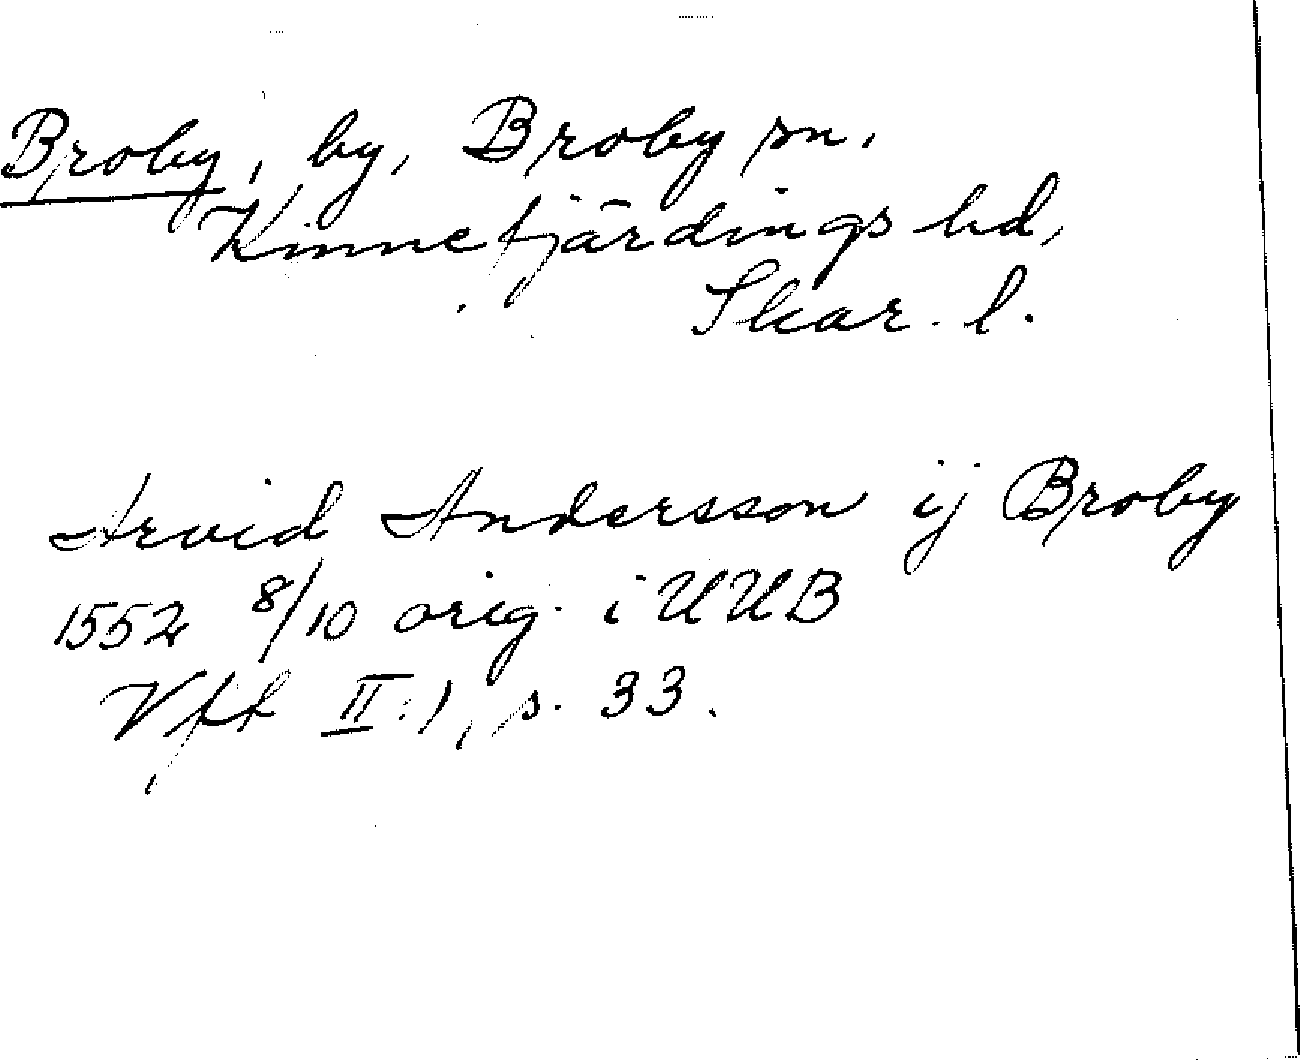 Broby, by, Broby sn.
Kinnefjärdings hd,
Skar. l.
Arvid Andersson ij Broby
1552 8/10 orig. i UUB
Vff II:1, s. 33.